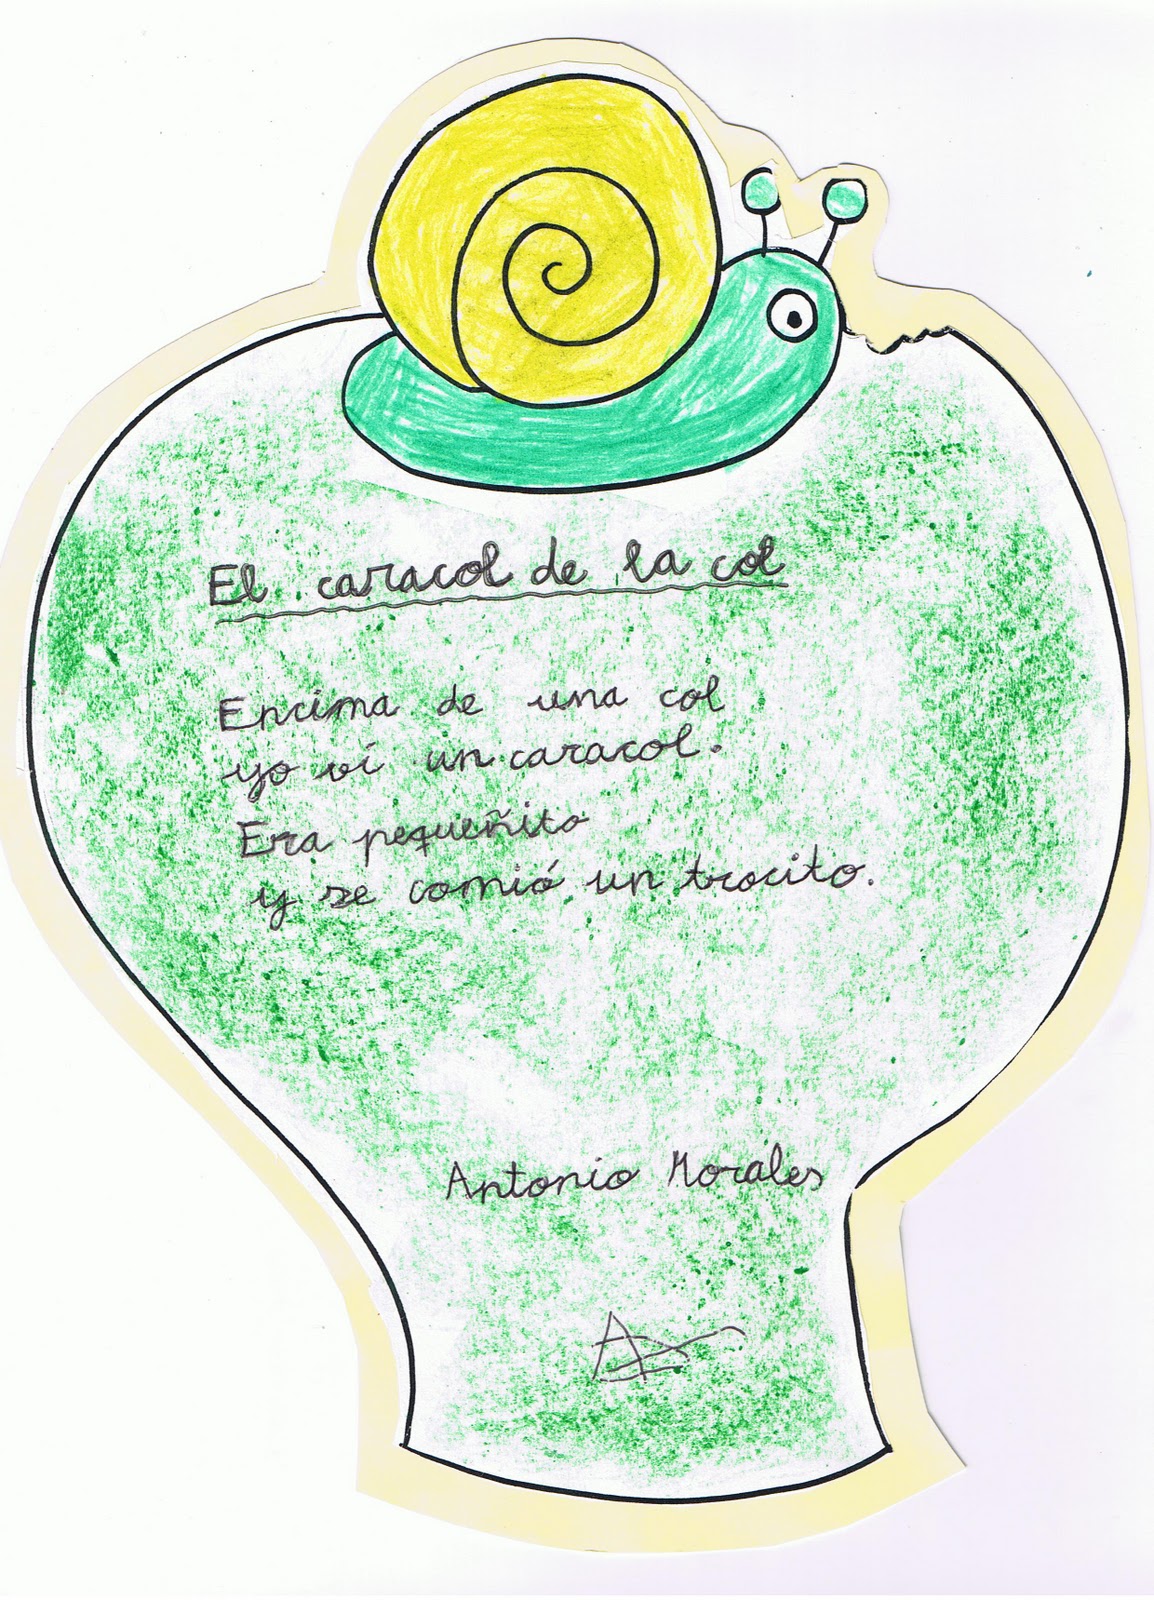 El caracol de la col
Encima de una col
yo ví un caracol.
Era pequeñito
y se comió un trocito.
Antonio Morales